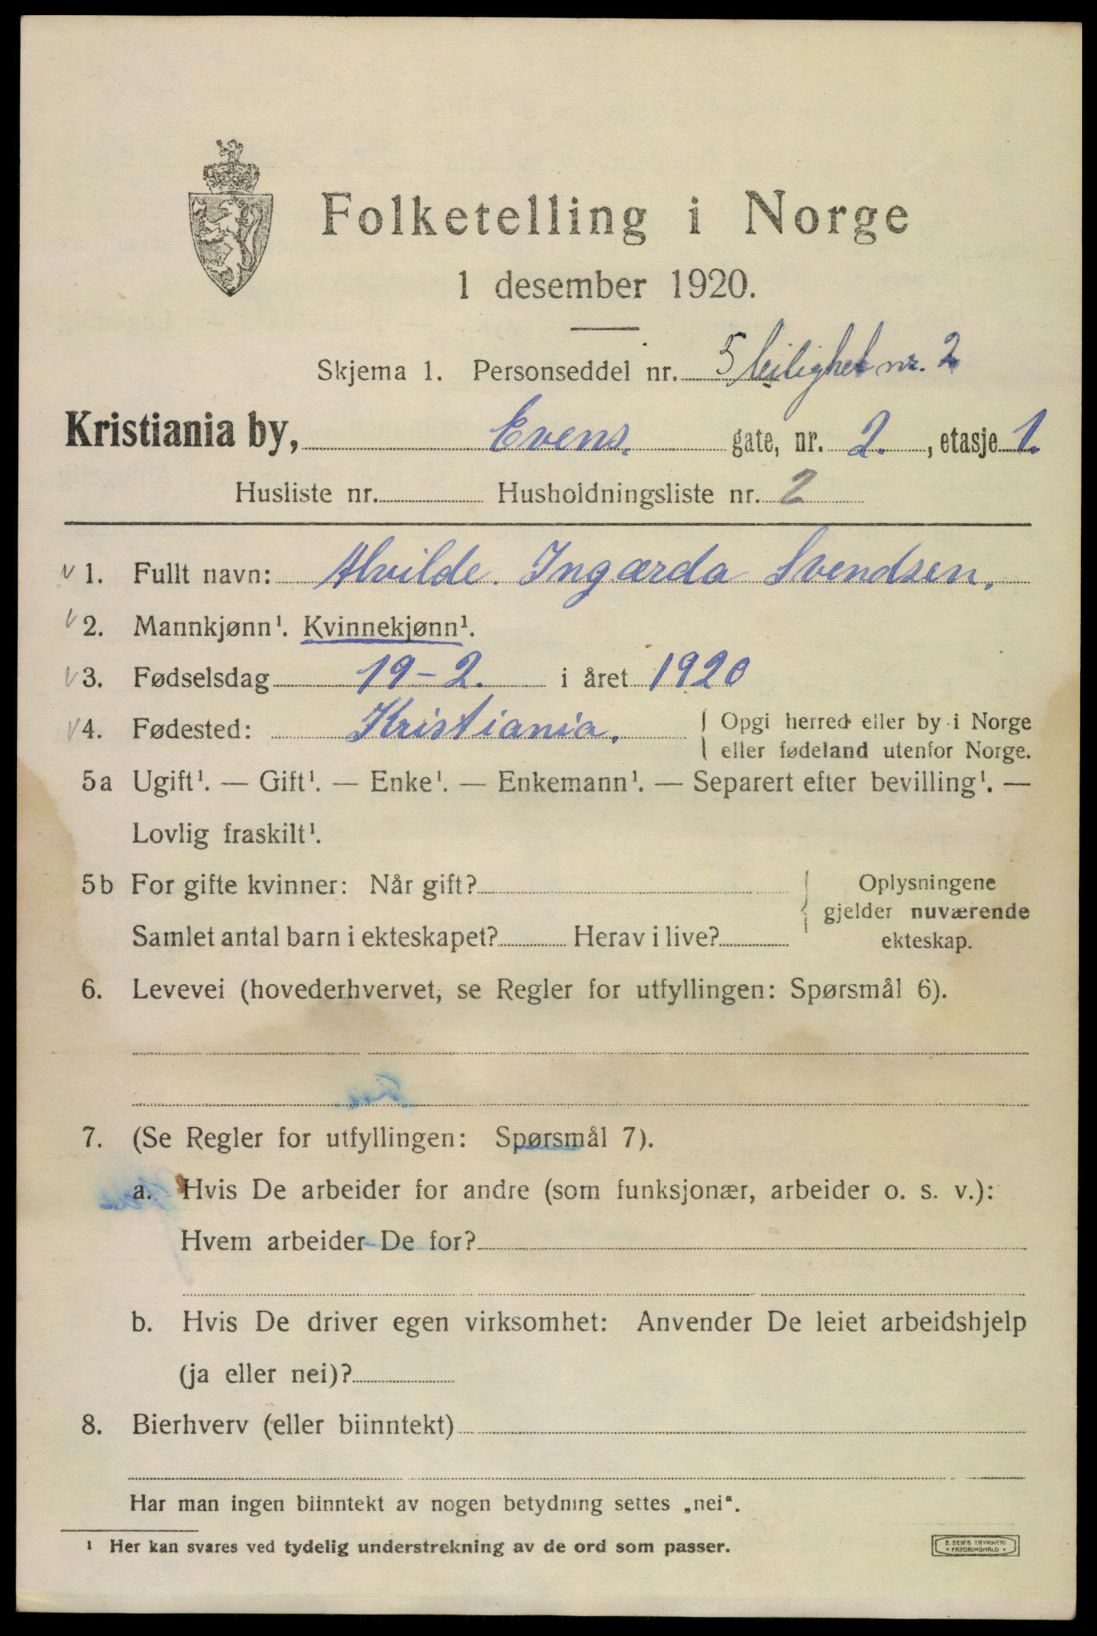 Folketelling i Norge
1 desember 1920.
Skjema 1. Personseddel nr. 5 leilighet nr. 2
Kristiania by, Evens. gate, nr. 2. , etasje 1.
Husliste nr. Husholdningsliste nr. 2
√ 1. Fullt navn: Alvilde. Ingærda Svendsen.
√ 2. Mannkjønn¹. Kvinnekjønn¹.
√ 3. Fødselsdag 19-2. i året 1920
√ 4. Fødested: Kristiania. Opgi herred eller by i Norge
eller fødeland utenfor Norge.
5a Ugift¹. — Gift¹. — Enke¹. — Enkemann¹. — Separert efter bevilling¹. —
Lovlig fraskilt¹.
5b For gifte kvinner: Når gift? Oplysningene
gjelder nuværende
Samlet antal barn i ekteskapet? Herav i live? ekteskap.
6. Levevei (hovederhvervet, se Regler for utfyllingen: Spørsmål 6).
7. (Se Regler for utfyllingen: Spørsmål 7).
a. Hvis De arbeider for andre (som funksjonær, arbeider o. s. v.):
Hvem arbeider De for?
b. Hvis De driver egen virksomhet: Anvender De leiet arbeidshjelp
(ja eller nei)?
8. Bierhverv (eller biinntekt)
Har man ingen biinntekt av nogen betydning settes „nei“.
¹ Her kan svares ved tydelig understrekning av de ord som passer.
E. SEM'S TRYKKERI
FREDRIKSHALD